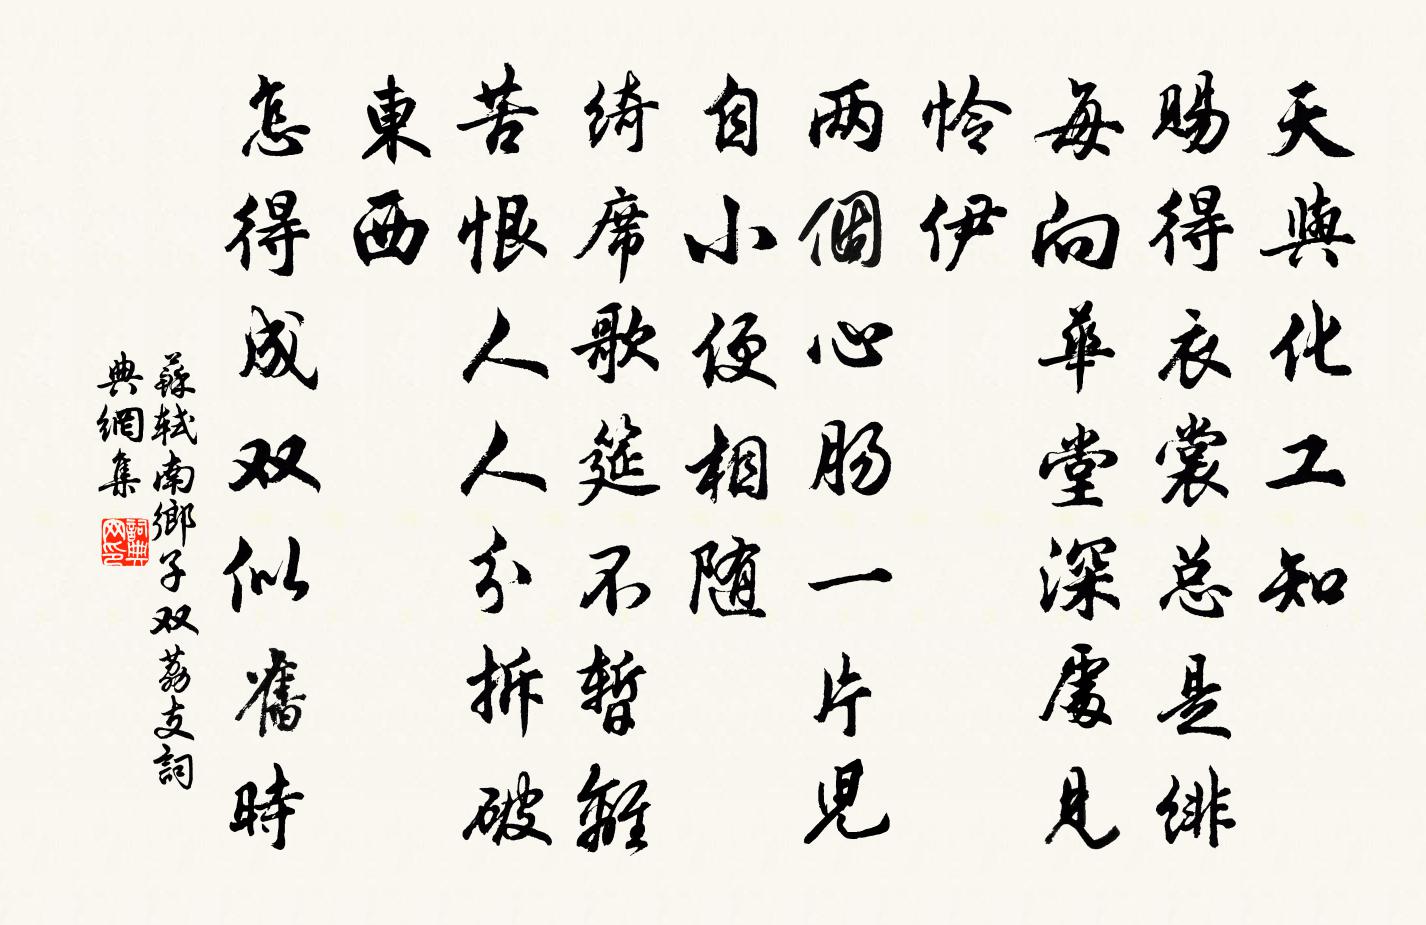 天與化工知
賜得衣裳总是緋
每向華堂深處見
怜伊
两個心肠一片兒
自小便相随
绮席歌筵不暫離
苦恨人人分拆破
東西
怎得成双似舊時
蘇轼南鄉子双荔支詞
典網集
詞典
网印